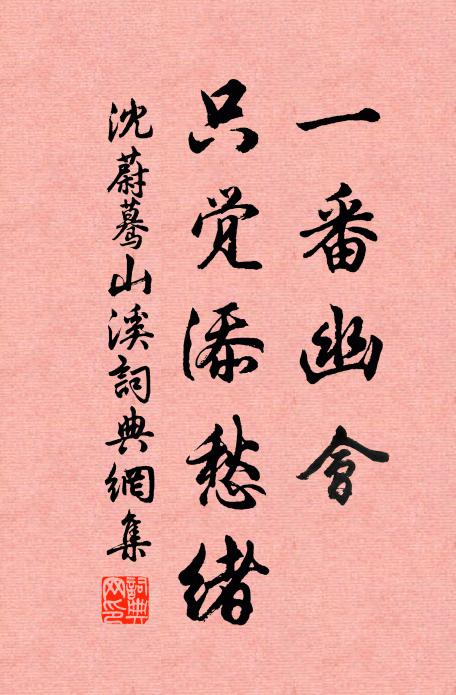 一番幽會
只覺添愁緒
沈蔚驀山溪詞典網集
詞典網印